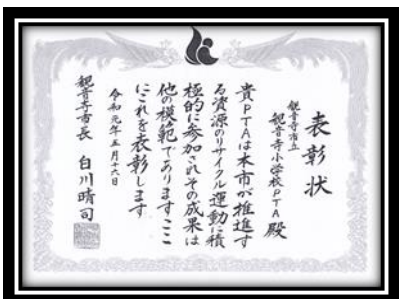 表彰状
観音寺市立
観音寺小学校PTA殿
貴PTAは本市が推進す
る資源のリサイクル運動に積
極的に参加されその成果は
他の模範でありますここ
にこれを表彰します
令和元年五月十六日
観音寺市長 白川晴司